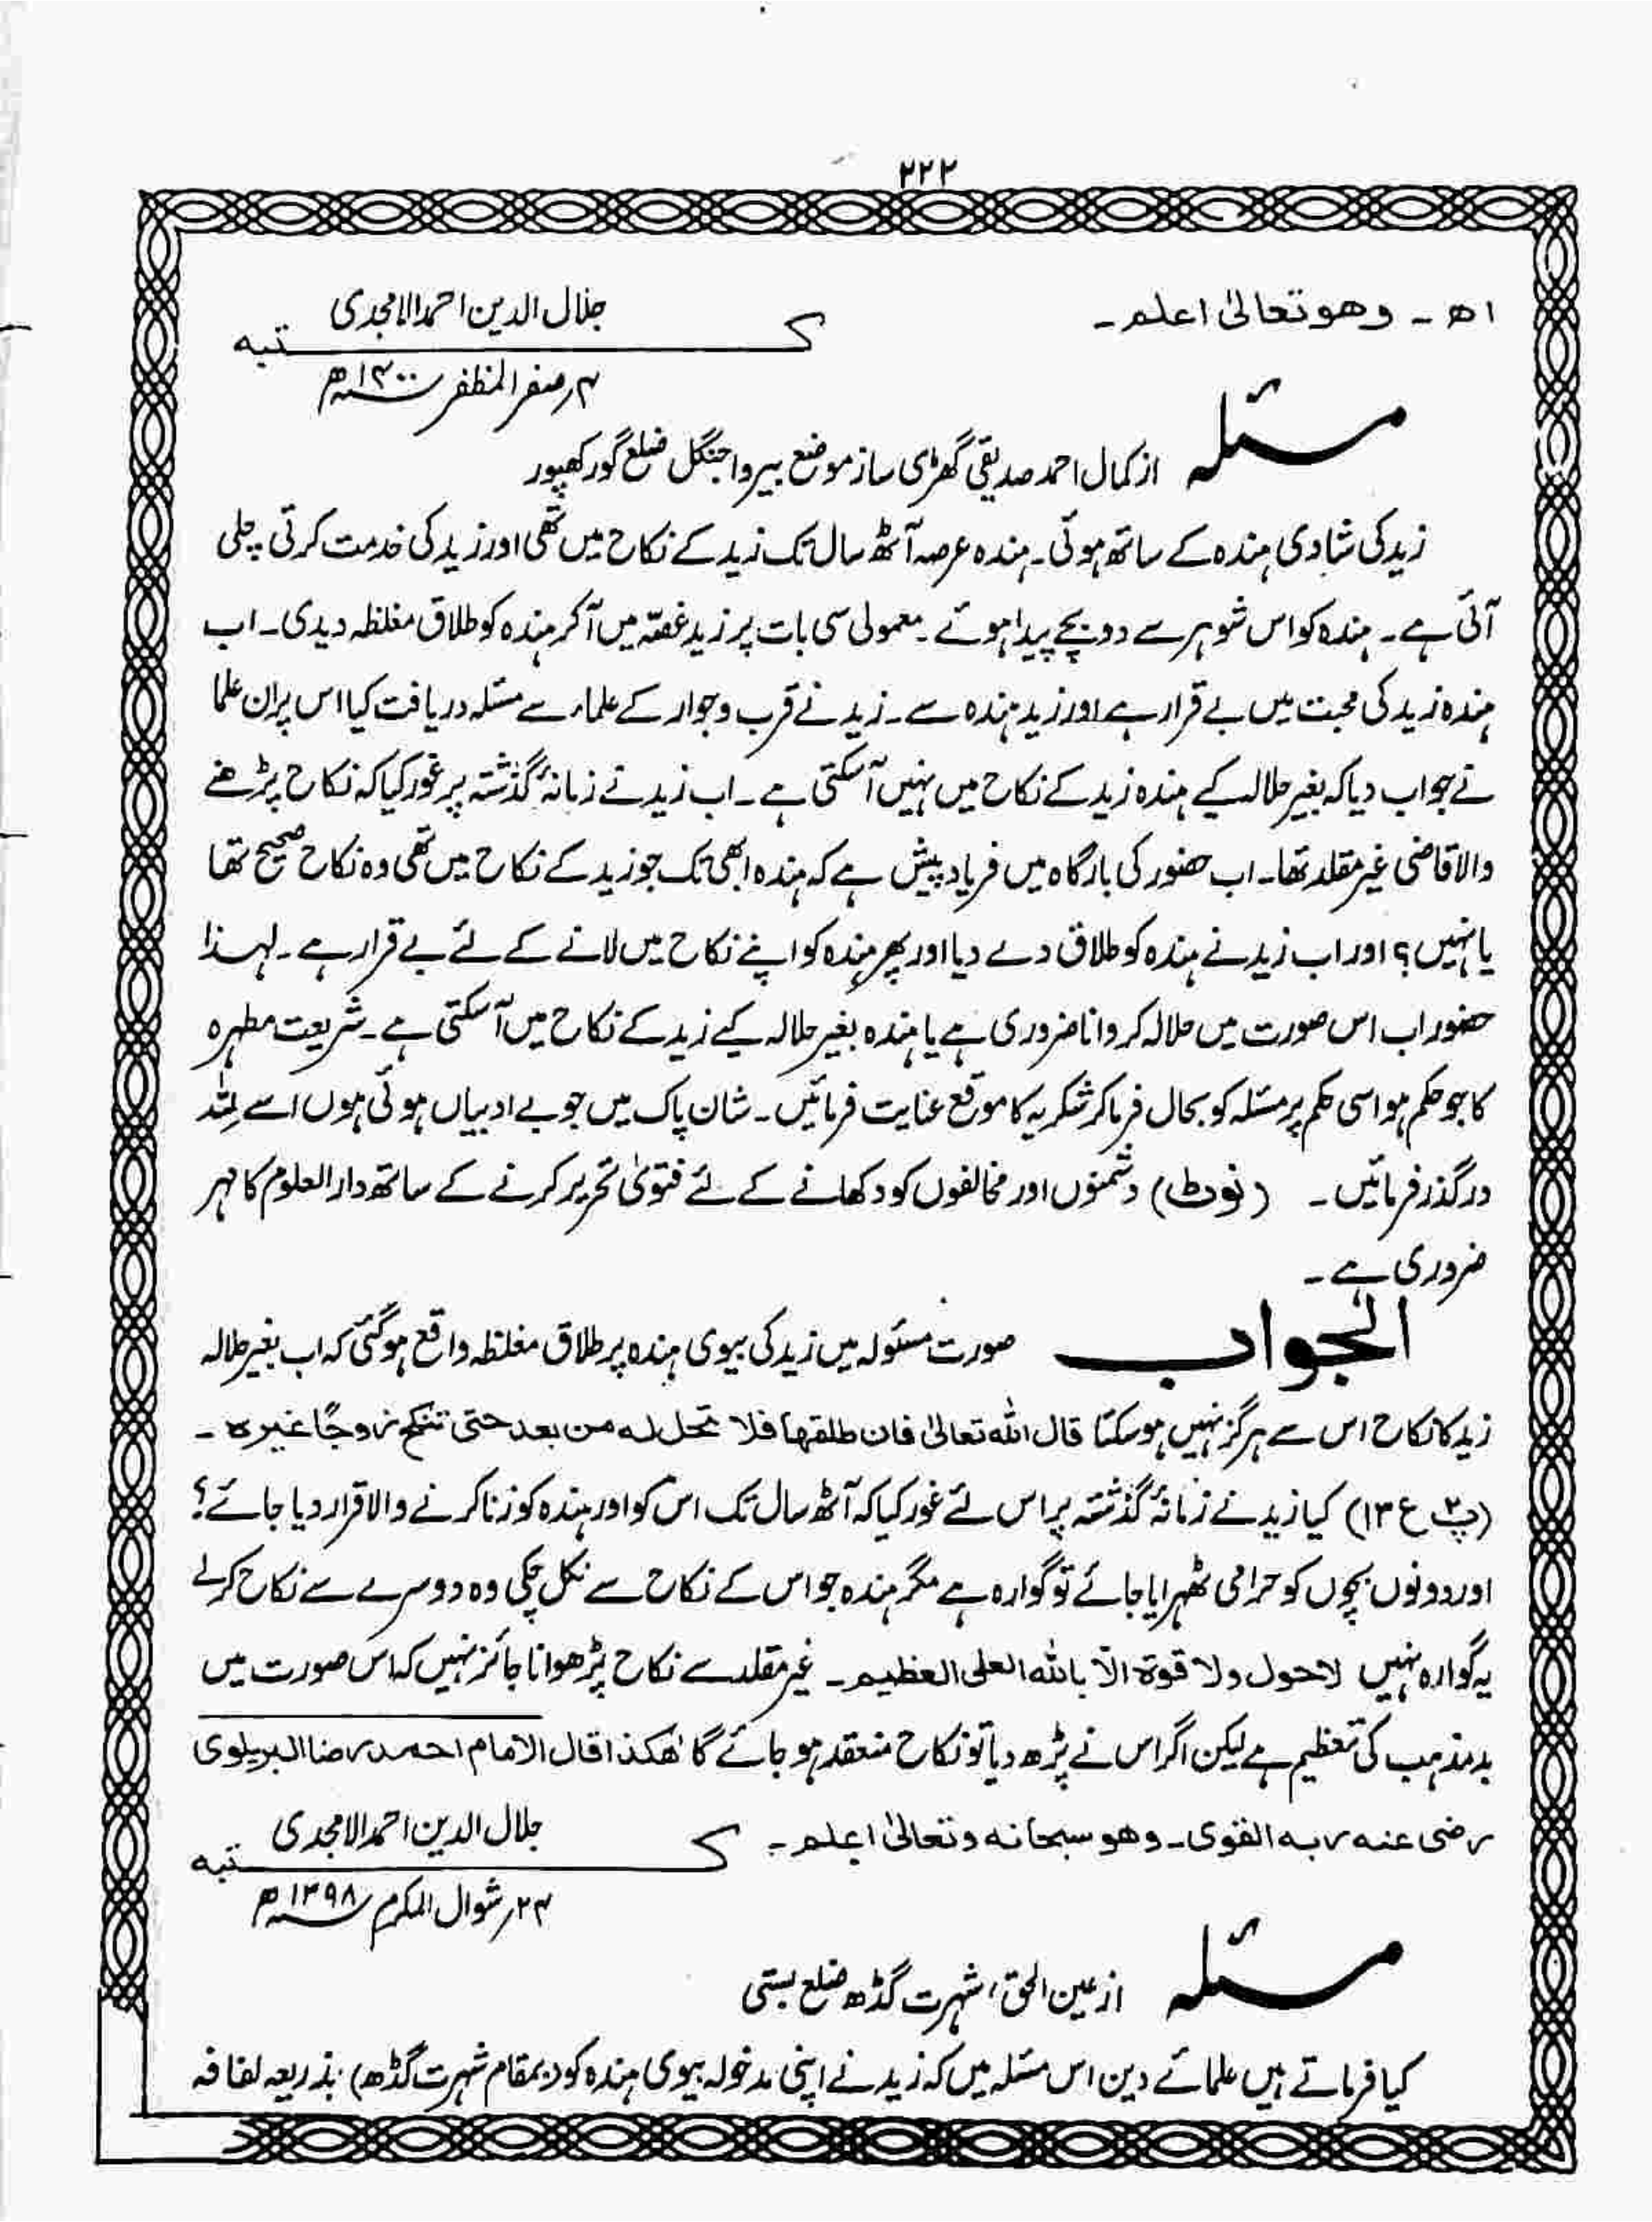 ۲۲۲
اھ ۔ وھو تعالیٰ اعلم ۔
جلال الدین احمد الامجدی
کتبہ
۴ ر صفر المظفر ۱۴۰۰ھ
مسئلہ از کمال احمد صدیقی گھڑی ساز موضع بیروا جنگل ضلع گورکھپور
زید کی شادی ہندہ کے ساتھ ہوئی۔ ہندہ عرصہ آٹھ سال تک زید کے نکاح میں تھی اور زید کی خدمت کرتی چلی
آئی ہے۔ ہندہ کو اس شوہر سے دو بچے پیدا ہوئے۔ معمولی سی بات پر زید غصّہ میں آکر ہندہ کو طلاق مغلظہ دیدی۔ اب
ہندہ زید کی محبت میں بے قرار ہے اور زید ہندہ سے۔ زید نے قرب و جوار کے علماء سے مسئلہ دریافت کیا اس پر ان علما
نے جواب دیا کہ بغیر حلالہ کیے ہندہ زید کے نکاح میں نہیں آسکتی ہے۔ اب زید نے زمانۂ گذشتہ پر غور کیا کہ نکاح پڑھنے
والا قاضی غیر مقلد تھا۔ اب حضور کی بارگاہ میں فریاد پیش ہے کہ ہندہ ابھی تک جو زید کے نکاح میں تھی وہ نکاح صحیح تھا
یا نہیں؟ اور اب زید نے ہندہ کو طلاق دے دیا اور پھر ہندہ کو اپنے نکاح میں لانے کے لئے بے قرار ہے۔ لہذا
حضور اب اس صورت میں حلالہ کروانا ضروری ہے یا ہندہ بغیر حلالہ کیے زید کے نکاح میں آسکتی ہے۔ شریعت مطہرہ
کا جو حکم ہو اسی حکم پر مسئلہ کو بحال فرما کر شکریہ کا موقع عنایت فرمائیں۔ شان پاک میں جو بے ادبیاں ہوئی ہوں اسے للہ
درگذر فرمائیں۔ (نوٹ) دشمنوں اور مخالفوں کو دکھانے کے لئے فتویٰ تحریر کرنے کے ساتھ دارالعلوم کا مہر
ضروری ہے۔
الجواب صورت مسئولہ میں زید کی بیوی ہندہ پر طلاق مغلظہ واقع ہوگئی کہ اب بغیر حلالہ
زید کا نکاح اس سے ہرگز نہیں ہوسکتا قال اللہ تعالیٰ فان طلقھا فلا تحل لہ من بعد حتی تنکح زوجًا غیرہ ۔
(پ۲ ع ۱۳) کیا زید نے زمانۂ گذشتہ پر اس لئے غور کیا کہ آٹھ سال تک اس کو اور ہندہ کو زنا کرنے والا قرار دیا جائے؟
اور دونوں بچوں کو حرامی ٹھہرایا جائے تو گوارہ ہے مگر ہندہ جو اس کے نکاح سے نکل چکی وہ دوسرے سے نکاح کرلے
یہ گوارہ نہیں لاحول ولا قوۃ الّا باللہ العلی العظیم۔ غیر مقلد سے نکاح پڑھوانا جائز نہیں کہ اس صورت میں
بد مذہب کی تعظیم ہے لیکن اگر اس نے پڑھ دیا تو نکاح منعقد ہو جائے گا ھٰکذا قال الامام احمد رضا البریلوی
رضی عنہ ربہ القوی۔ وھو سبحانہ وتعالیٰ اعلم۔
جلال الدین احمد الامجدی
کتبہ
۲۴ ر شوال المکرم ۱۳۹۸ھ
مسئلہ از عین الحق، شہرت گڈھ ضلع بستی
کیا فرماتے ہیں علمائے دین اس مسئلہ میں کہ زید نے اپنی مدخولہ بیوی ہندہ کو (بمقام شہرت گڈھ) بذریعہ لفافہ